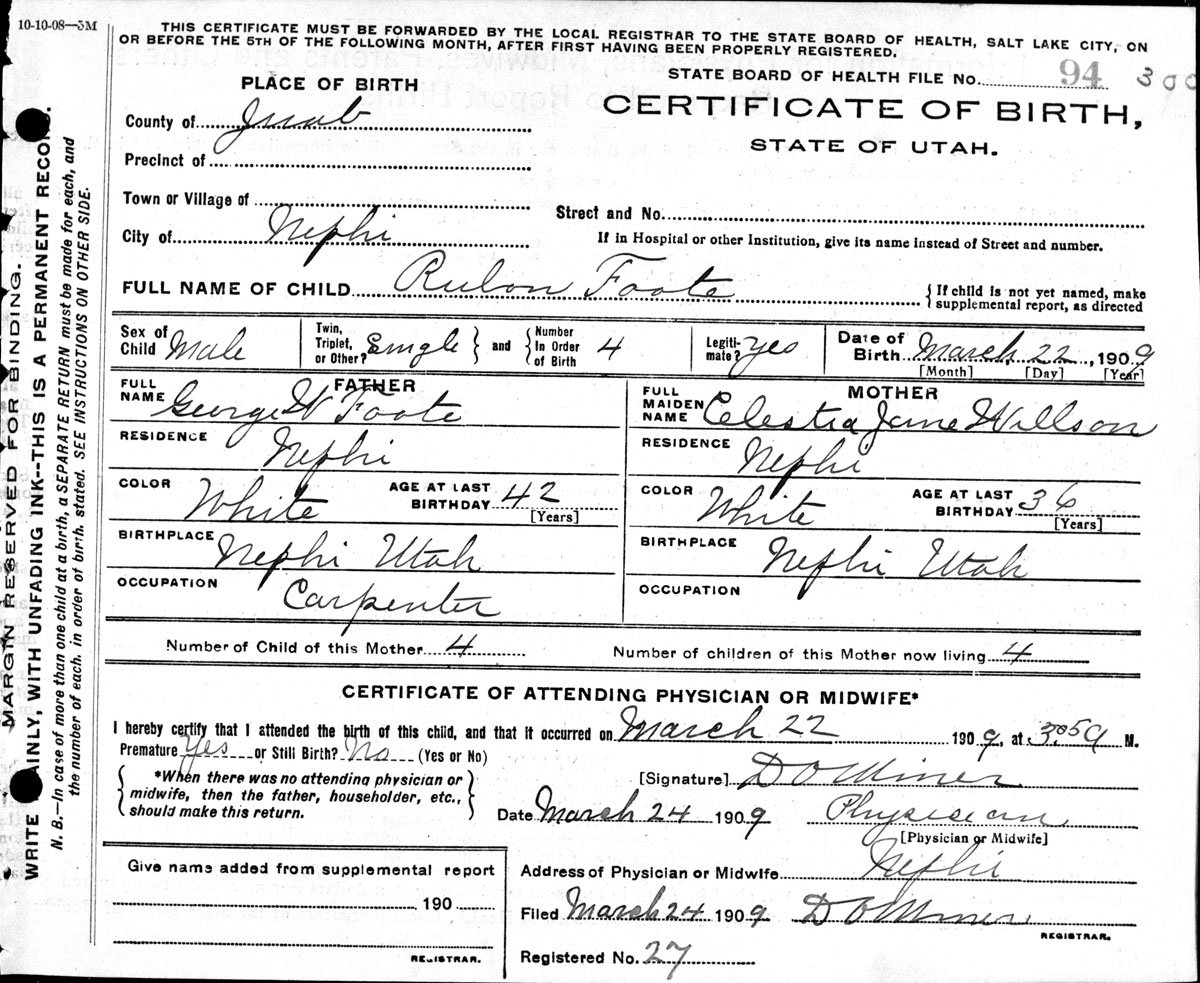 10-10-08—5M
THIS CERTIFICATE MUST BE FORWARDED BY THE LOCAL REGISTRAR TO THE STATE BOARD OF HEALTH, SALT LAKE CITY, ON
OR BEFORE THE 5TH OF THE FOLLOWING MONTH, AFTER FIRST HAVING BEEN PROPERLY REGISTERED.
STATE BOARD OF HEALTH FILE No. 94 300
CERTIFICATE OF BIRTH,
STATE OF UTAH.
PLACE OF BIRTH
County of Juab
Precinct of
Town or Village of
Street and No.
City of Nephi
If in Hospital or other Institution, give its name instead of Street and number.
FULL NAME OF CHILD Rulon Foote
{If child is not yet named, make
supplemental report, as directed
Sex of Child Male
Twin, Triplet, or Other? Single } and { Number In Order of Birth 4
Legiti-mate? Yes
Date of Birth March 22, 1909
[Month] [Day] [Year]
FATHER
FULL NAME George W Foote
RESIDENCE Nephi
COLOR White AGE AT LAST BIRTHDAY 42
[Years]
BIRTHPLACE Nephi Utah
OCCUPATION Carpenter
MOTHER
FULL MAIDEN NAME Celestia Jane Willson
RESIDENCE Nephi
COLOR White AGE AT LAST BIRTHDAY 36
[Years]
BIRTHPLACE Nephi Utah
OCCUPATION
Number of Child of this Mother 4 Number of children of this Mother now living 4
CERTIFICATE OF ATTENDING PHYSICIAN OR MIDWIFE*
I hereby certify that I attended the birth of this child, and that it occurred on March 22 1909, at 3:05 a M.
Premature Yes or Still Birth? No (Yes or No)
{ *When there was no attending physician or
midwife, then the father, householder, etc.,
should make this return. }
[Signature] D O Miner
Date March 24 1909 Physician
[Physician or Midwife]
Address of Physician or Midwife Nephi
Filed March 24 1909 D O Miner
REGISTRAR.
Registered No. 27
Give name added from supplemental report
190
REGISTRAR.
MARGIN RESERVED FOR BINDING.
WRITE AINLY, WITH UNFADING INK--THIS IS A PERMANENT RECO
N. B.—In case of more than one child at a birth, a SEPARATE RETURN must be made for each, and
the number of each, in order of birth, stated. SEE INSTRUCTIONS ON OTHER SIDE.